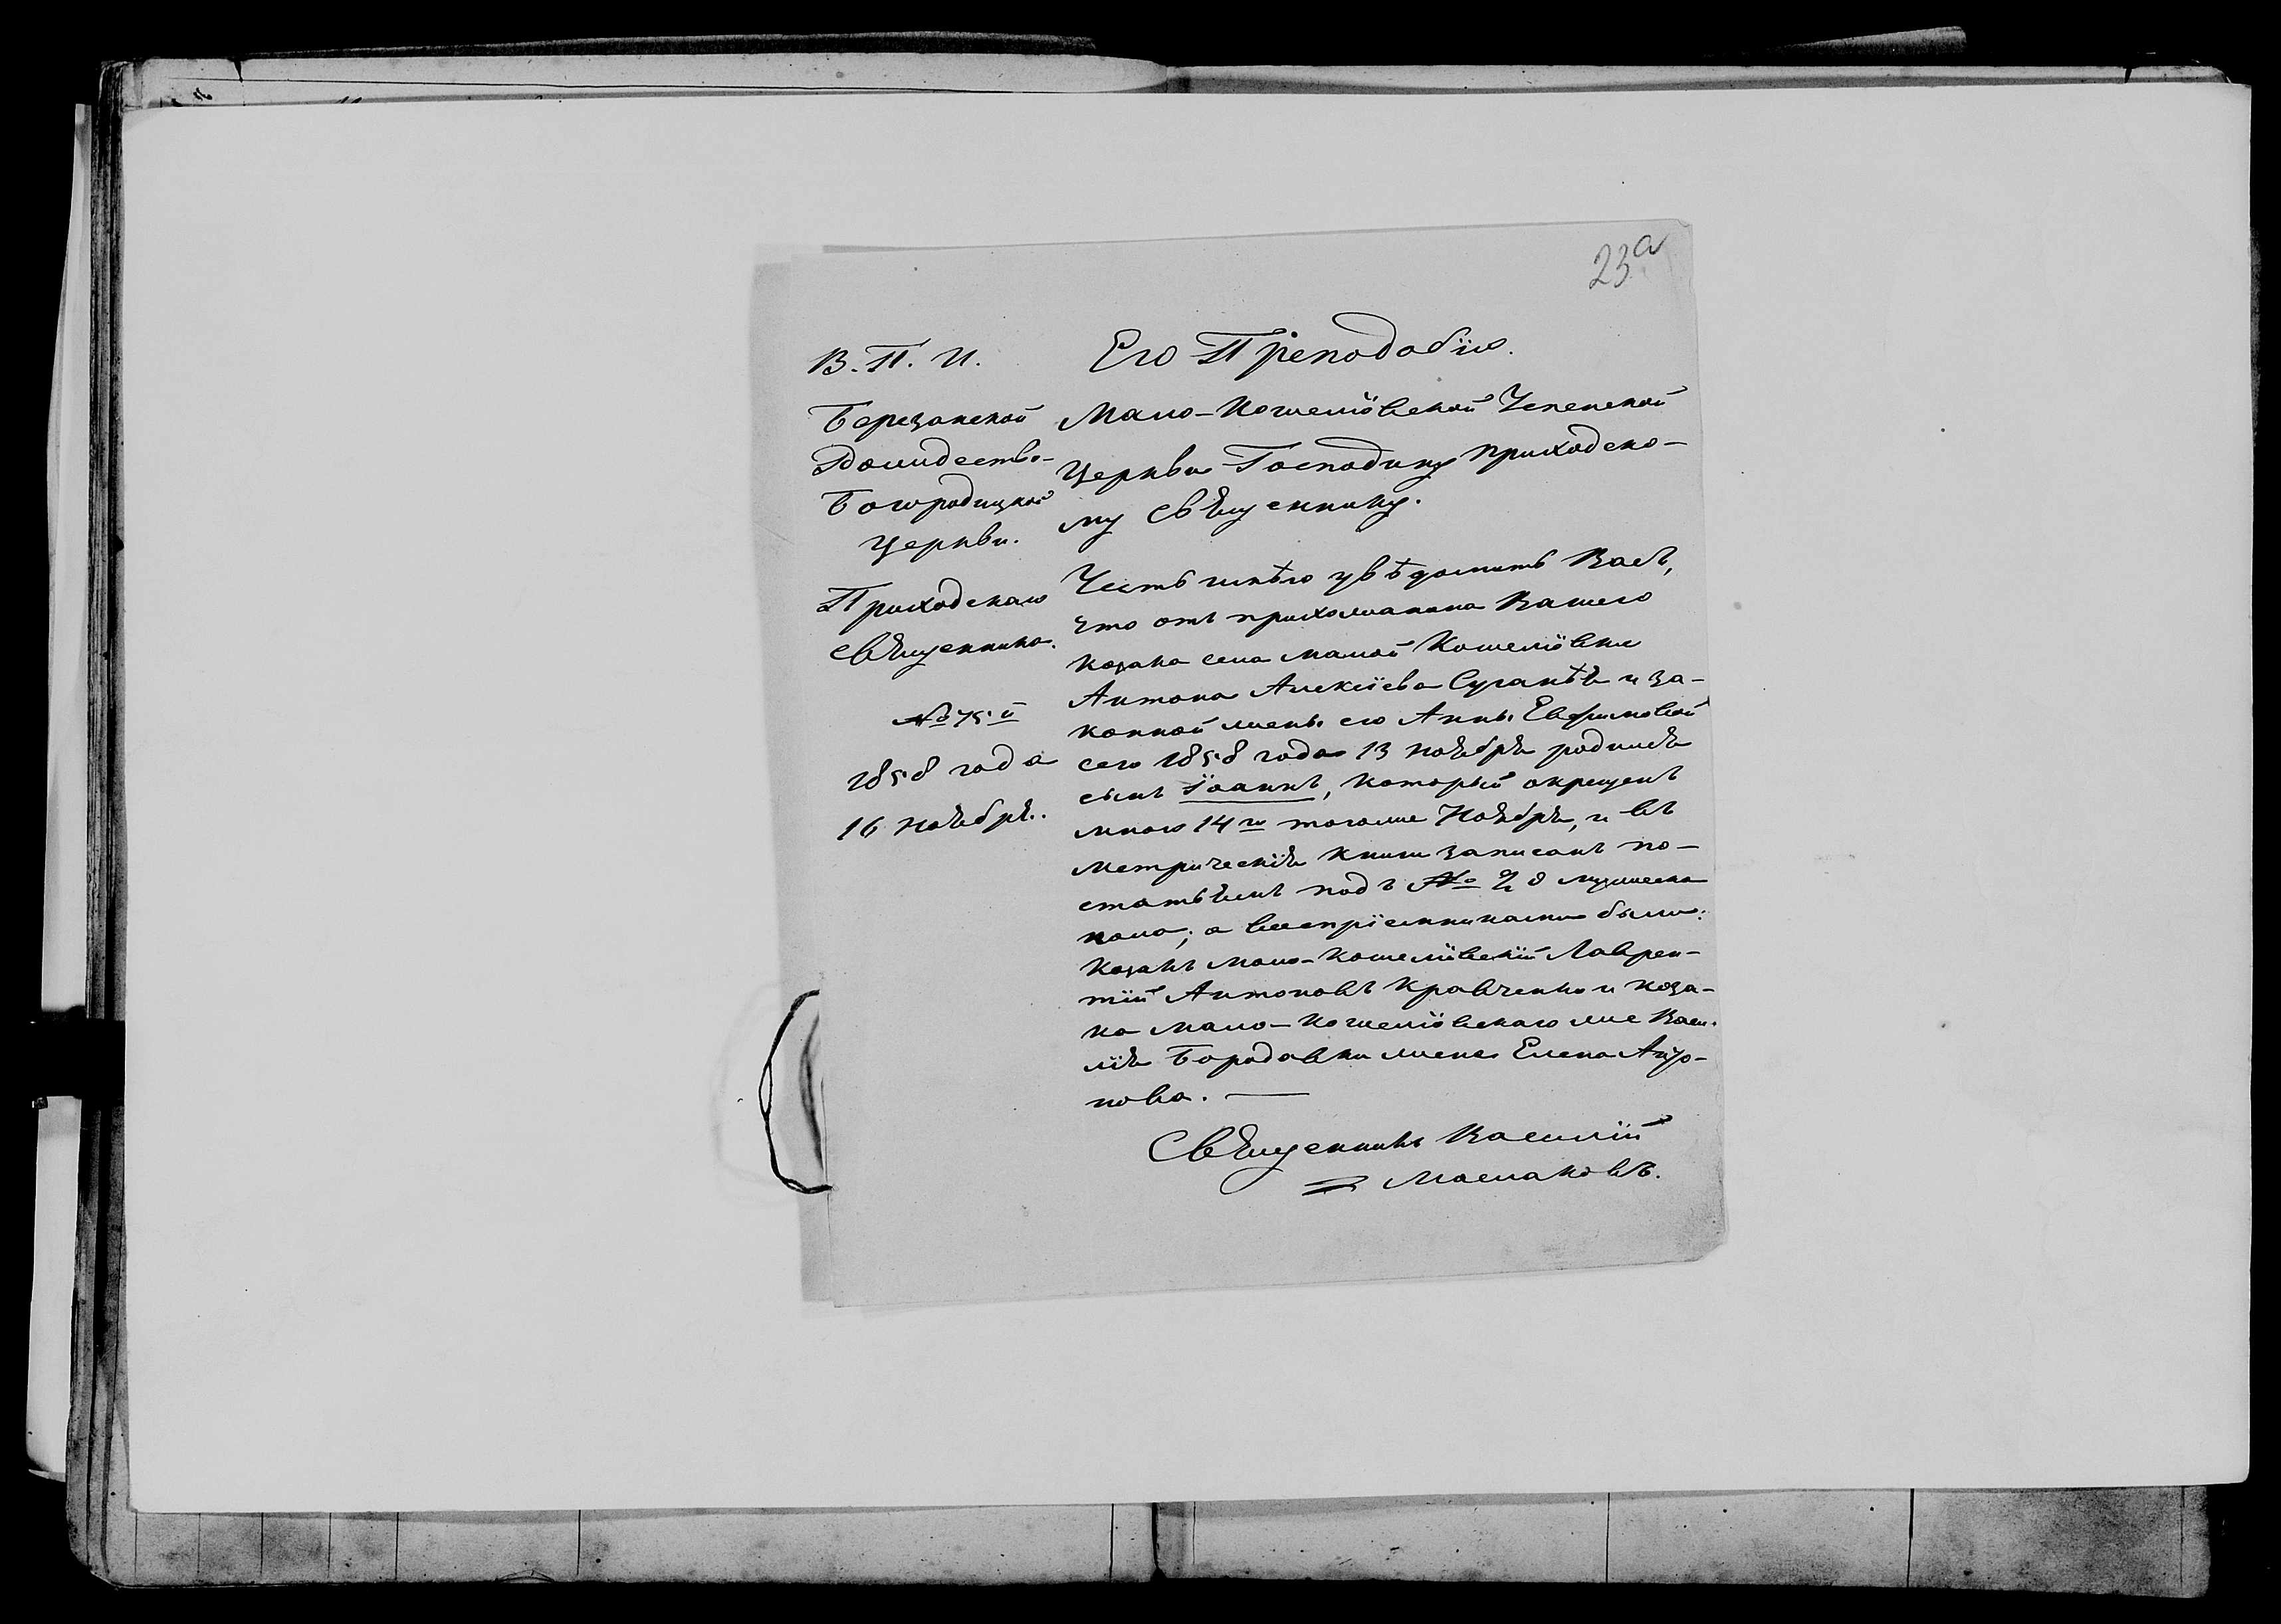 23а
В. П. И.
Березанской
Рождество-
Богородицкой
церкви.
Приходскаго
священника.
№ 75й
1858 года
16 ноября.
Его Преподобію.
Мало-Кошелювской Успенской
церкви Господину приходско-
му священнику.
Честь имѣю увѣдомить Васъ,
что отъ прихожанина Вашего
козака села Малой Кошелювки
Антона Алексіева и за-
конной жены его Анны Евфимовой
сего 1858 года 13 ноября родился
сынъ Іоаннъ, который окрещенъ
мною 14го тогоже Ноября, и въ
метрическія книги записанъ по-
статьямъ подъ № 28 мужеска
пола; а воспріемниками были:
Козакъ Мало-Кошелювскій Лаврен-
тій Антоновъ Кравченко и коза-
ка Мало-Кошелювскаго же Васи-
лія Бородавки жена Елена
нова. —
Священникъ Василій
= Маслаковъ.